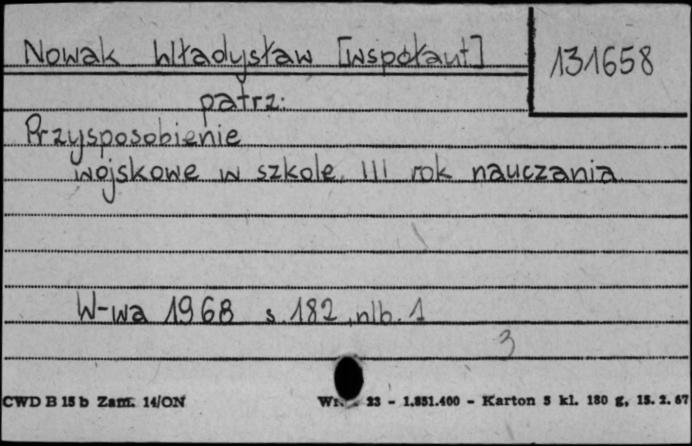 Nowak Władysław [współaut] 131658
patrz:
Przysposobienie
wojskowe w szkole. III rok nauczania
W-wa 1968 s. 182, nlb. 1
3
CWD B 15 b Zam. 14/ON 23 - 1.851.400 - Karton 5 kl. 180 g, 15. 2. 67